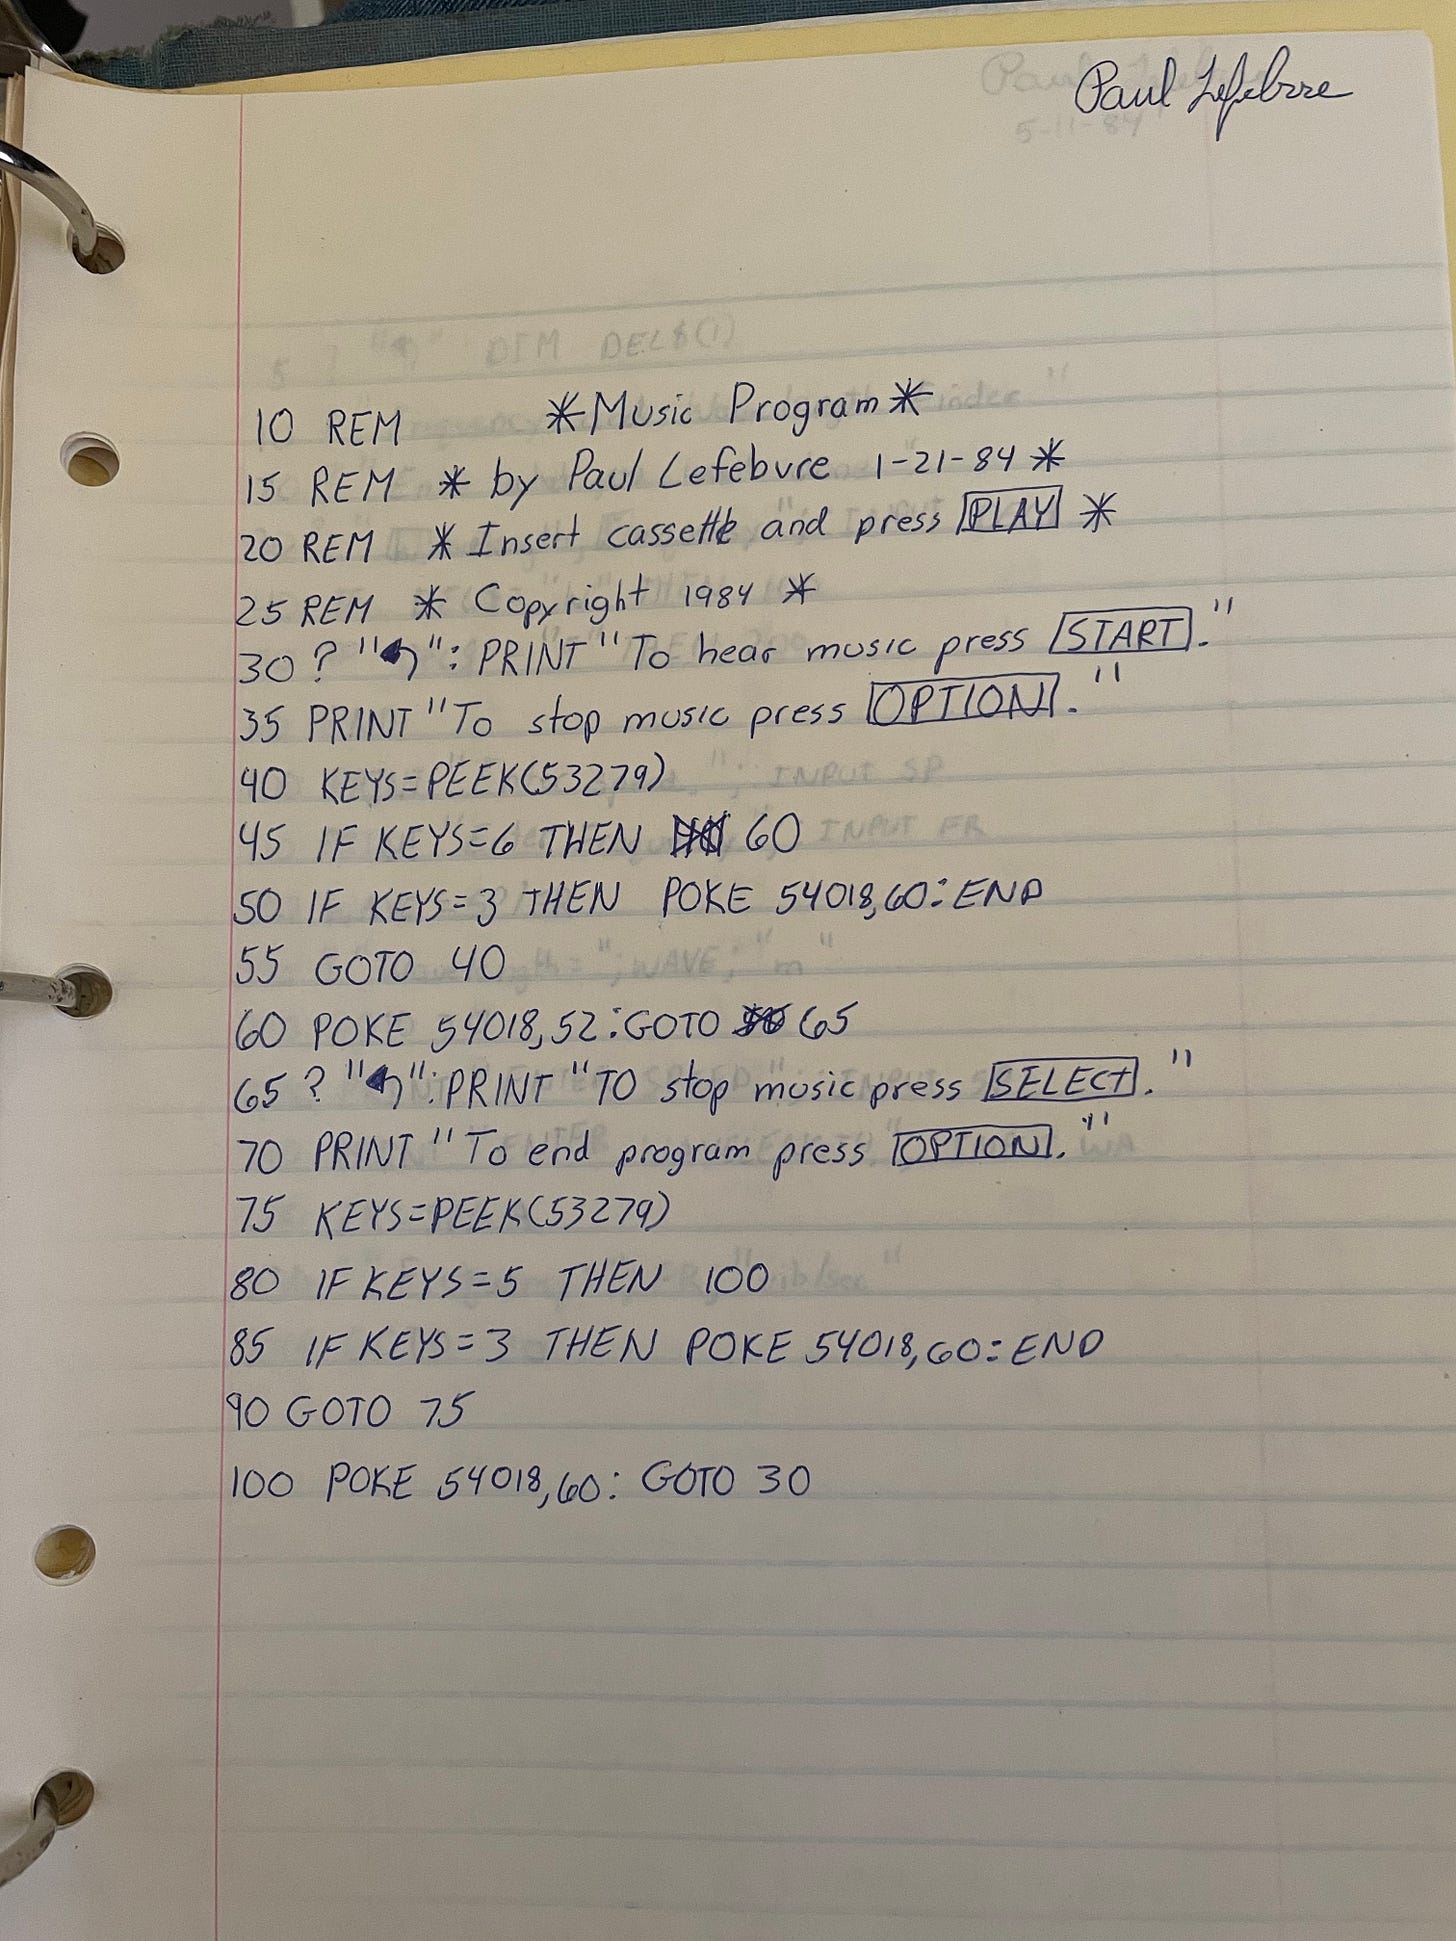 Paul Lefebvre
5-11-84
5 ? "↰" DIM DEL$(1)
10 REM *Music Program*
15 REM * by Paul Lefebvre 1-21-84 *
20 REM * Insert cassette and press PLAY *
25 REM * Copyright 1984 *
30 ? "↰": PRINT "To hear music press START."
35 PRINT "To stop music press OPTION."
40 KEYS=PEEK(53279)
INPUT SP
45 IF KEYS=6 THEN 60
INPUT FR
50 IF KEYS=3 THEN POKE 54018,60:END
55 GOTO 40
";WAVE;"m"
60 POKE 54018,52:GOTO 65
65 ? "↰":PRINT "TO stop music press SELECT."
70 PRINT "To end program press OPTION."
75 KEYS=PEEK(53279)
80 IF KEYS=5 THEN 100
85 IF KEYS=3 THEN POKE 54018,60:END
90 GOTO 75
100 POKE 54018,60: GOTO 30